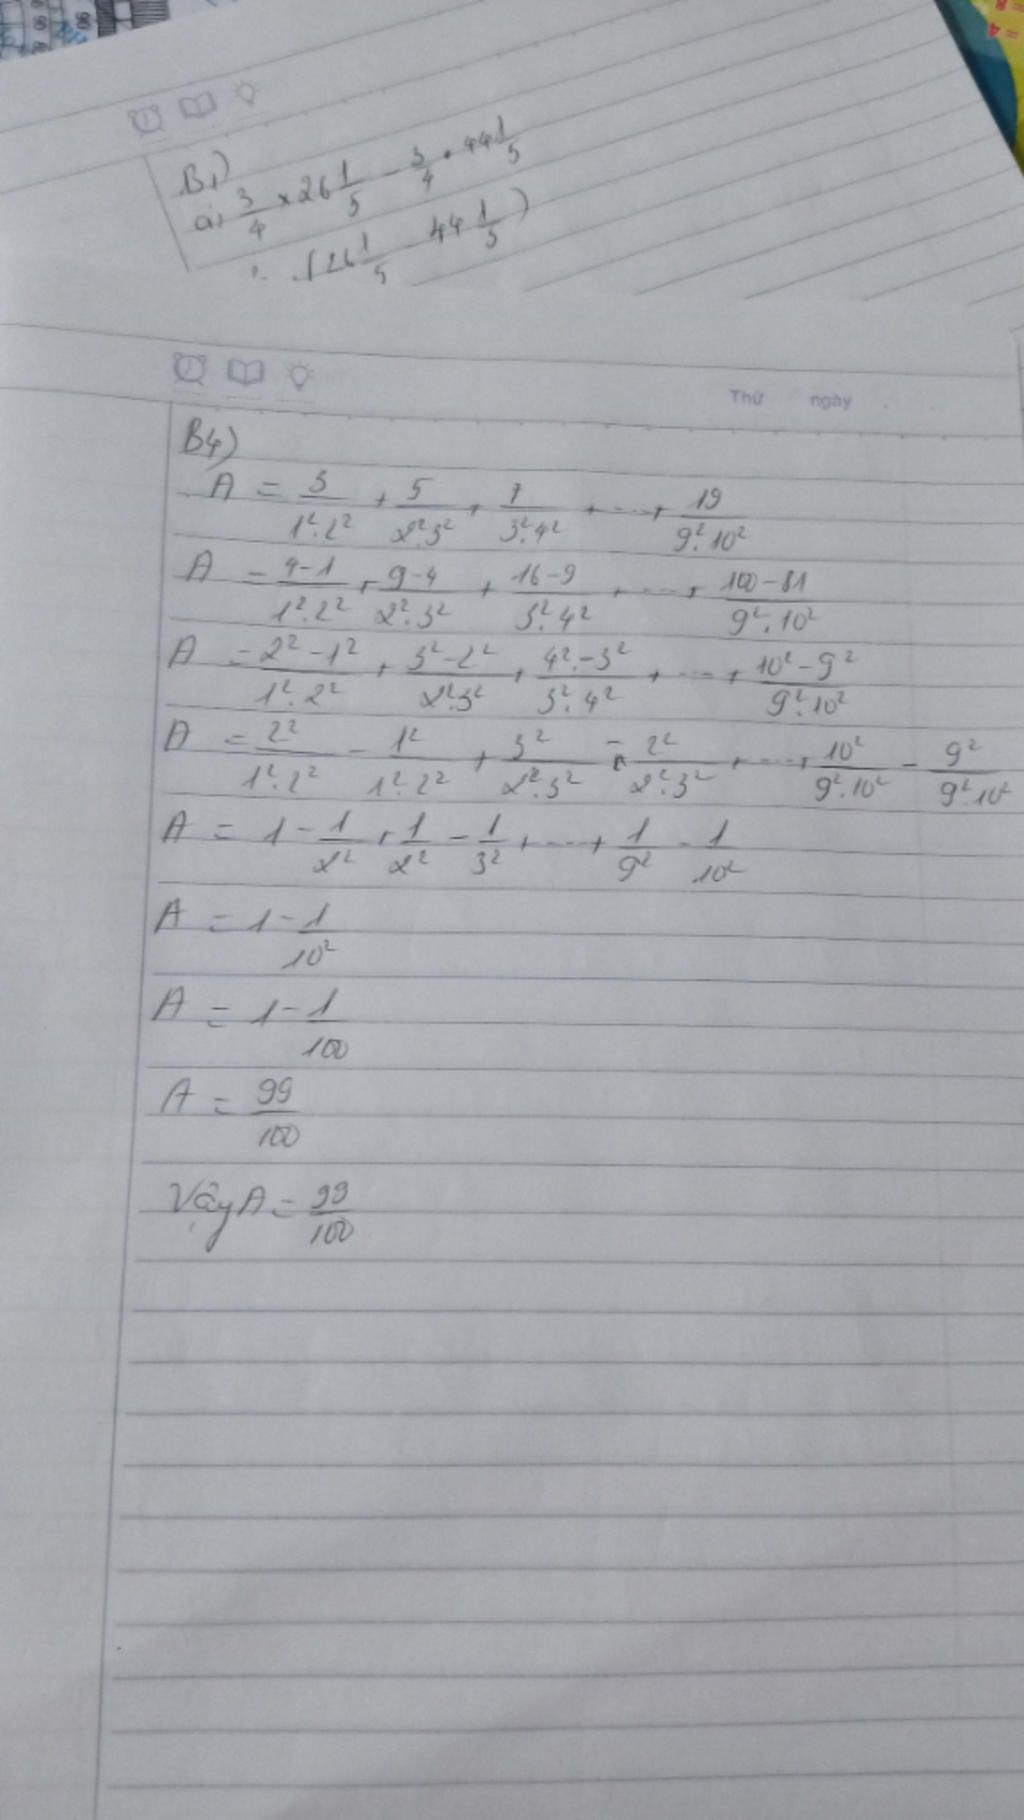 B1)
a, 3/4 × 26 1/5 - 3/4 . 44 1/5
(26 1/5 - 44 1/5)
Thứ ngày
B4)
A = 3/1².2² + 5/2².3² + 7/3².4² + ... + 19/9².10²
A = 4-1/1².2² + 9-4/2².3² + 16-9/3².4² + ... + 100-81/9².10²
A = 2²-1²/1².2² + 3²-2²/2².3² + 4²-3²/3².4² + ... + 10²-9²/9².10²
A = 2²/1².2² - 1²/1².2² + 3²/2².3² - 2²/2².3² + ... + 10²/9².10² - 9²/9².10²
A = 1 - 1/2² + 1/2² - 1/3² + ... + 1/9² - 1/10²
A = 1 - 1/10²
A = 1 - 1/100
A = 99/100
Vậy A = 99/100